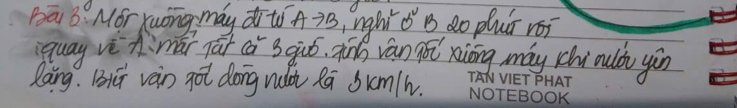 Bài 3: Một xuồng máy đi từ A→B, nghỉ ở B 20 phút rồi
quay về A mất tất cả 3 giờ. tính vân tốc xuồng máy khi nước yên
lặng. Biết vân tốt dòng nước là 3 km/h.
TAN VIET PHAT
NOTEBOOK